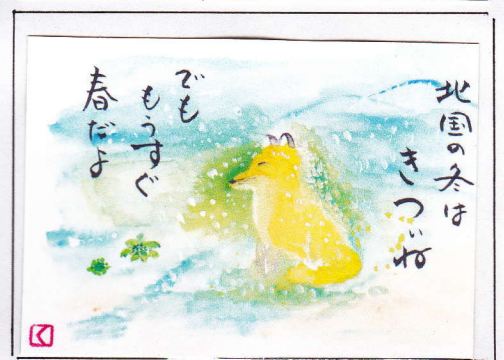 北国の冬は
きついね
でも
もうすぐ
春だよ
く